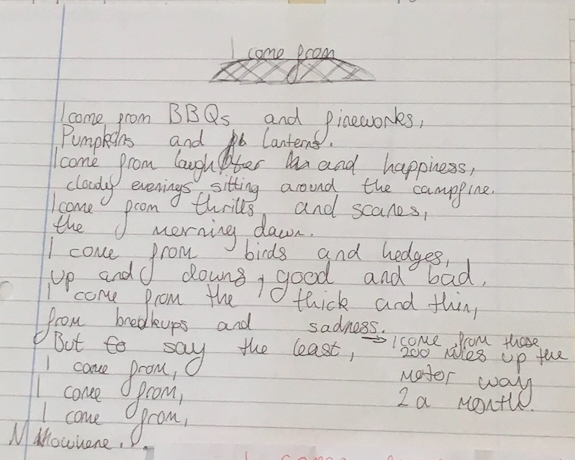 I come from
I come from BBQs and fireworks,
Pumpkins and lanterns.
I come from laughter and happiness,
cloudy evenings sitting around the campfire.
I come from thrills and scares,
the morning dawn.
I come from birds and hedges,
up and downs, good and bad,
I come from the thick and thin,
from breakups and sadness.
But to say the least,
I come from,
I come from,
I come from,
Nowhere...
→ I come from those
200 miles up the
motor way
2 a month.